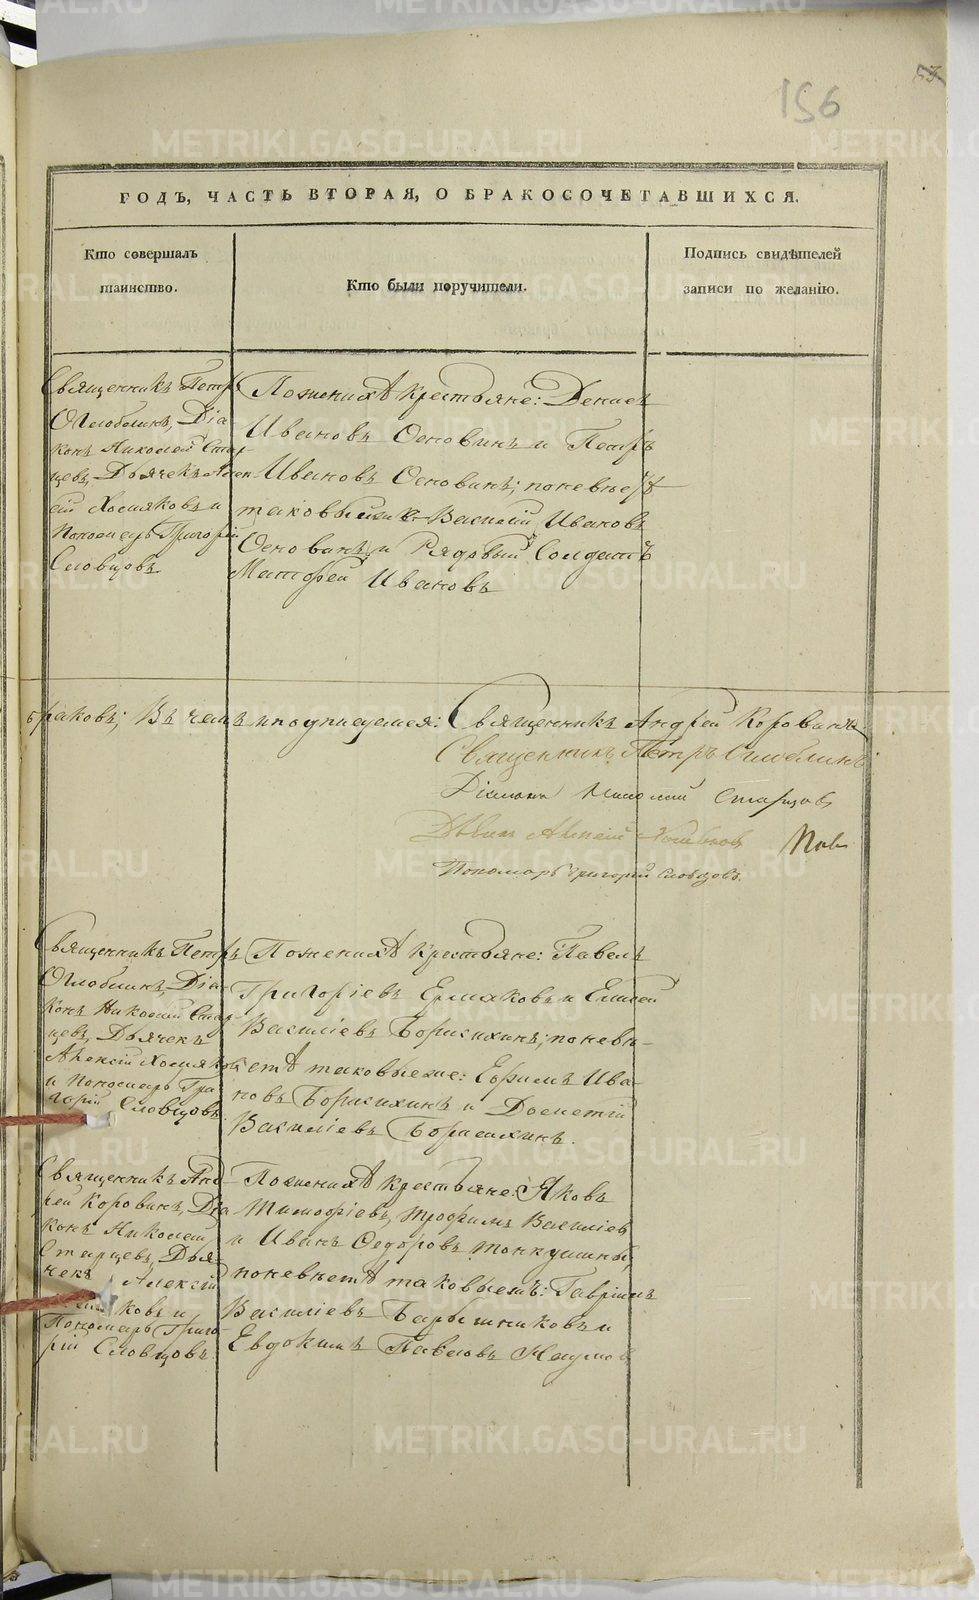 156
53
ГОДЪ, ЧАСТЬ ВТОРАЯ, О БРАКОСОЧЕТАВШИХСЯ.
Кто совершалъ
таинство.
Кто были поручители.
Подпись свидѣтелей
записи по желанію.
Священникъ Петръ
Оглоблинъ, Діа
конъ Николай Стар
цевъ, Дьячекъ Алек
сій Хомяковъ и
Пономарь Григорій
Словцовъ
По женихѣ крестьяне: Денисъ
Ивановъ Осповинъ и Петръ
Ивановъ Осповинъ; по невѣстѣ
таковыежъ Василій Ивановъ
Осповинъ и Рядовый Солдатъ
Матфей Ивановъ
браковъ; Въ чемъ и подписуемся: Священникъ Андрей Коровинъ
Священникъ Петръ Оглоблинъ
Діаконъ Николай Старцовъ
Дьячекъ Алексій Хомяковъ
Пономарь Григорій Словцовъ
Священникъ Петръ
Оглоблинъ, Діа-
конъ Николай Стар
цевъ, Дьячекъ
Алексій Хомяковъ
и Пономарь Гри-
горій Словцовъ.
По женихѣ крестьяне: Павелъ
Григоріевъ Ермаковъ и Елисей
Василіевъ Борисихинъ; по невѣ-
стѣ таковыеже: Ефимъ Ива-
новъ Борисихинъ и Дометій
Василіевъ Борисихинъ.
Священникъ Анд-
рей Коровинъ, Діа
конъ Николай
Старцевъ, Дья-
чекъ Алексій
ковъ и
Пономарь Григо-
рій Словцовъ.
По женихѣ крестьяне: Яковъ
Тимофіевъ, Трофимъ Василіев
и Иванъ Федоровъ Тонкушины,
по невѣстѣ таковыежъ: Гавріилъ
Василіевъ Барышниковъ и
Евдокимъ Павловъ Наумов
METRIKI.GASO-URAL.RU